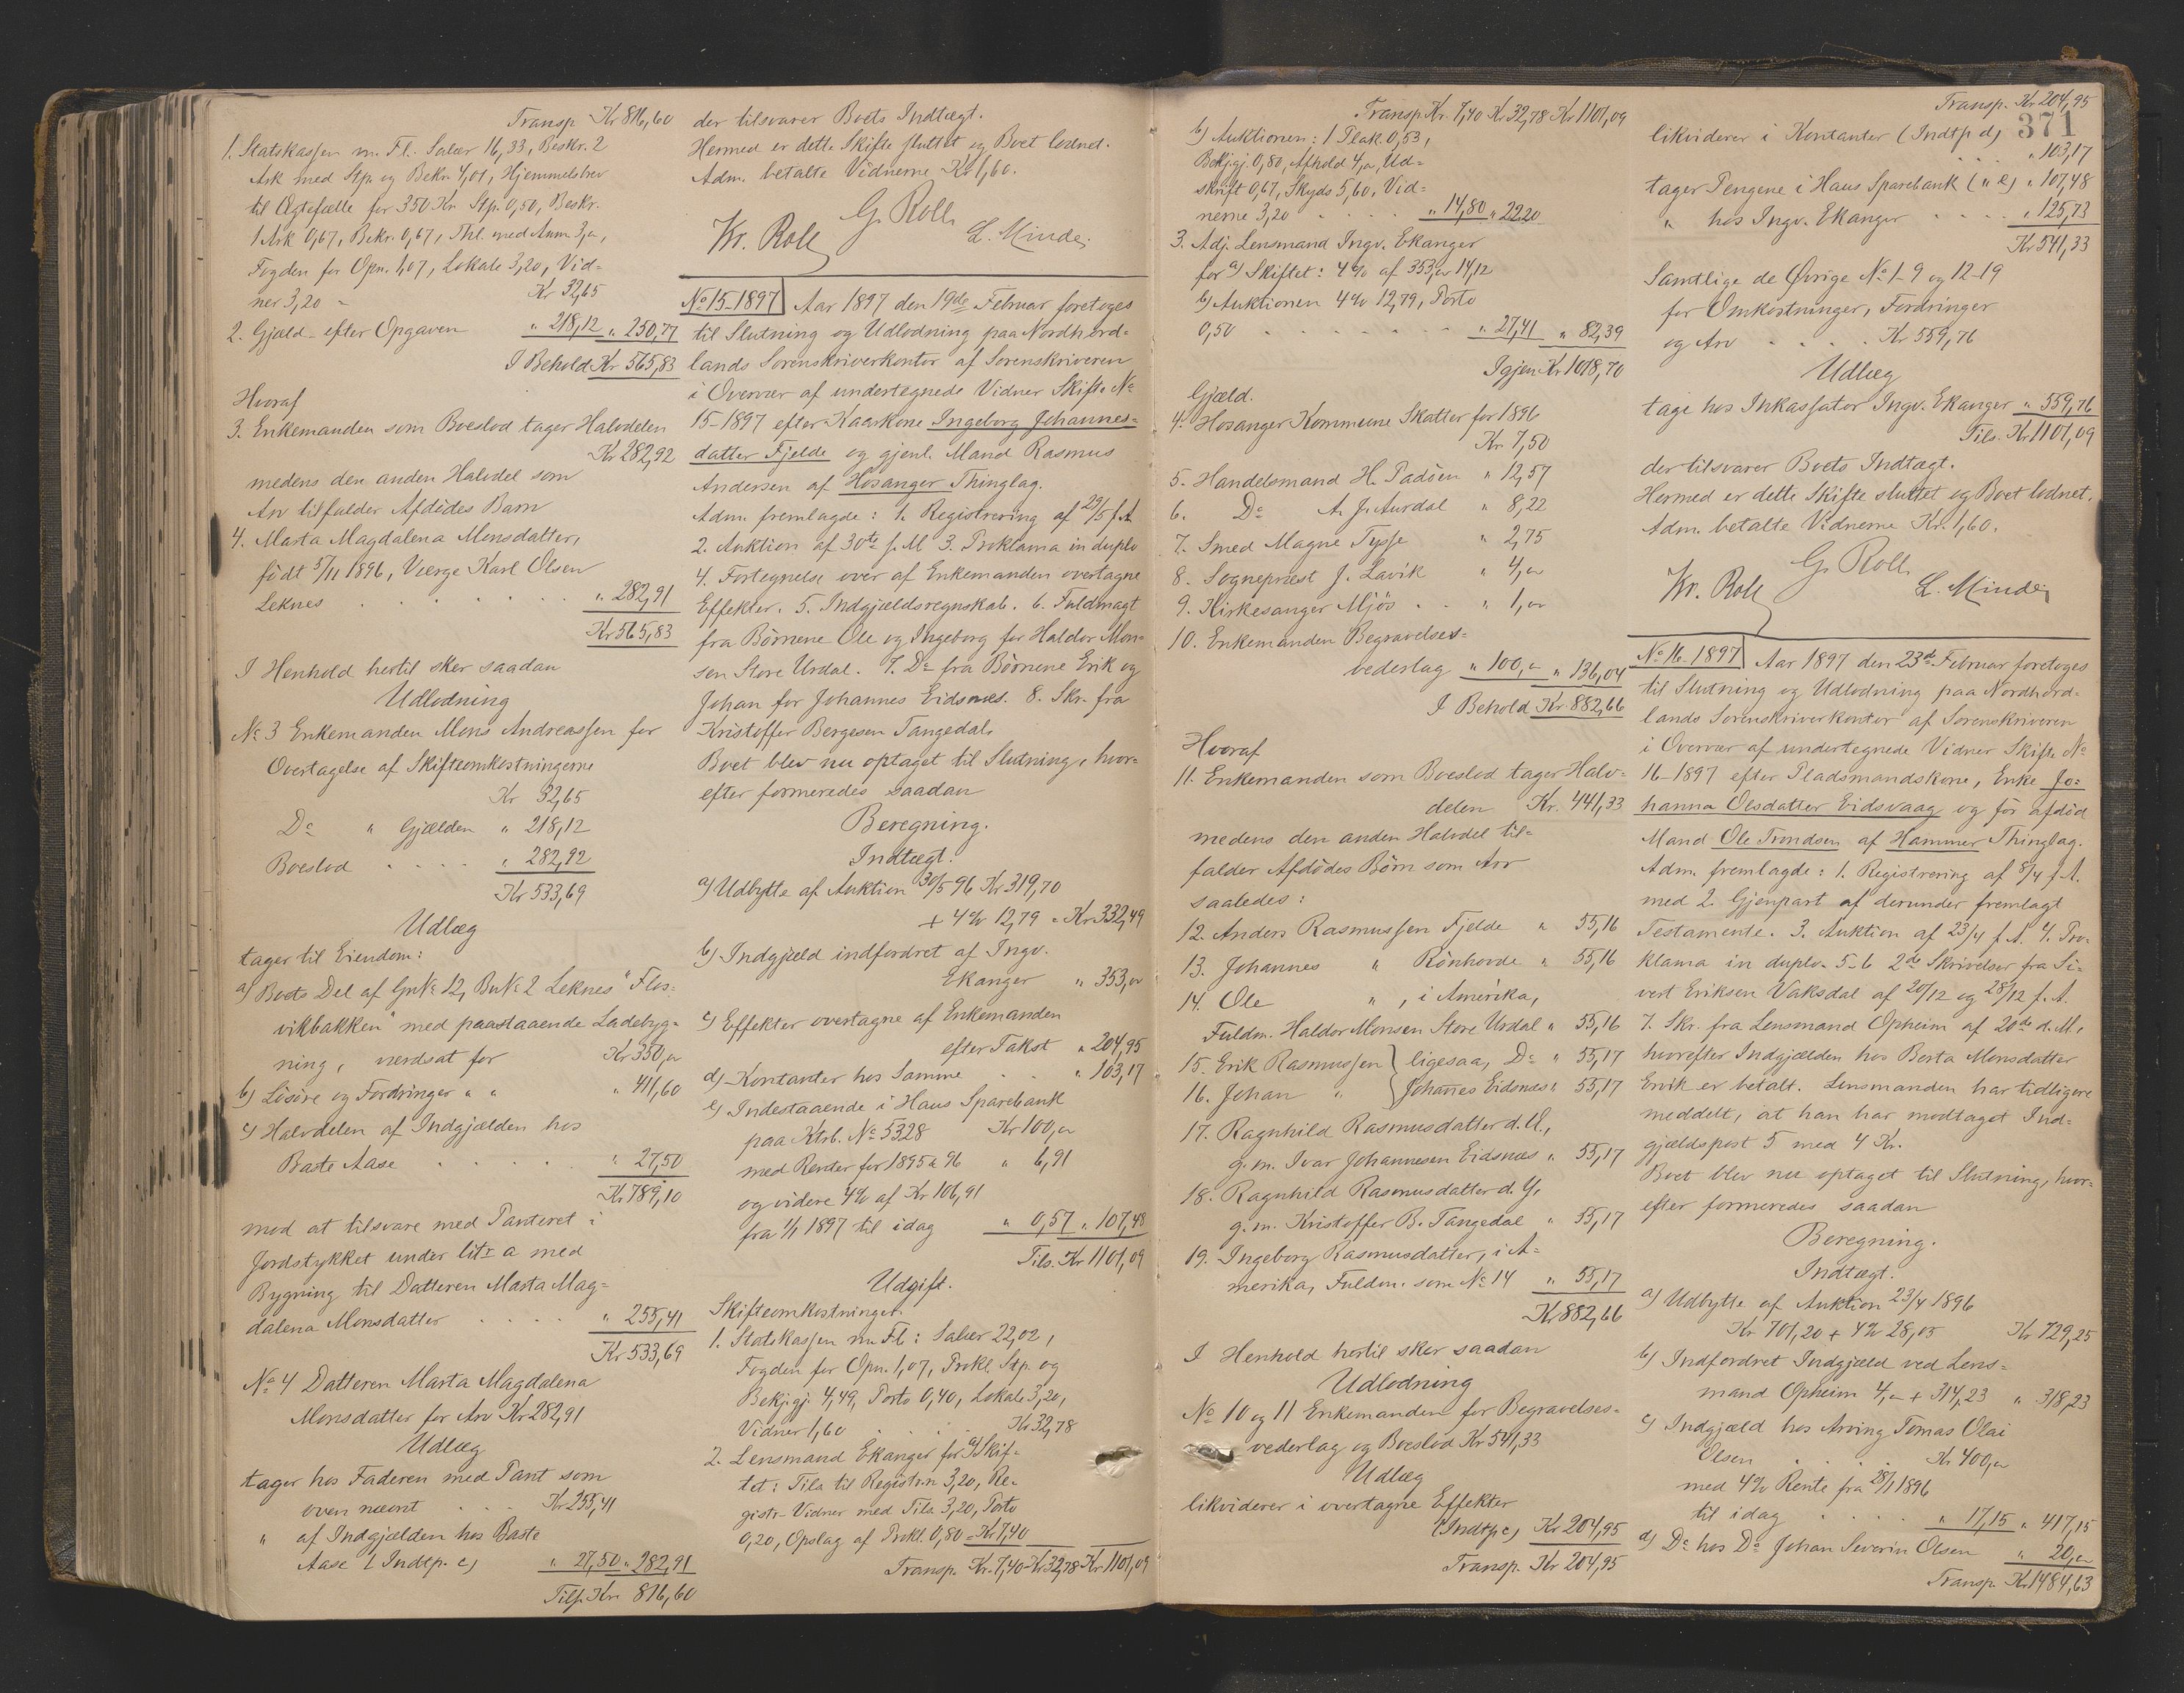 Transp. Kr 816,60
1. Statskassen m. Fl. Salær 16,33, Beskr. 2
Ark med Stp. og Bekr. 4,01, Hjemmelsbrev
til Ægtefælle for 350 Kr. Stp. 0,50, Beskr.
1 Ark 0,67, Bekr. 0,67, Thl. med Anm 3,",
Fogden for Opn. 1,07, Lokale 3,20, Vid=
ner 3,20 - Kr 32,65
2. Gjæld - efter Opgaven " 218,12 " 250,77
I Behold Kr 565,83
Hvoraf
3. Enkemanden som Boeslod tager Halvdelen
Kr 282,92
medens den anden Halvdel som
Arv tilfalder Afdødes Barn
4. Marta Magdalena Monsdatter,
født 5/11 1896, Værge Karl Olsen
Leknes . . . . . . " 282,91
Kr 565,83
I Henhold hertil sker saadan
Udlodning
No 3 Enkemanden Mons Andreassen for
Overtagelse af Skifteomkostningerne
Kr 32,65
Do " Gjælden " 218,12
Boeslod . . . . " 282,92
Kr 533,69
Udlæg
tager til Eiendom:
a) Boets Del af GrNo 12, BrNo 2 Leknes "Flos=
vikbakken" med paastaaende Ladebyg=
ning, værdsat for Kr 350,"
b) Løsøre og Fordringer " " " 411,60
c) Halvdelen af Indgjælden hos
Baste Aase . . . . . " 27,50
Kr 789,10
mod at tilsvare med Panteret i
Jordstykket under litr a med
Bygning til Datteren Marta Mag=
dalena Monsdatter . . . . " 255,41
Kr 533,69
No 4 Datteren Marta Magdalena
Monsdatter for Arv Kr 282,91
Udlæg
tager hos Faderen med Pant som
oven nævnt . . . Kr 255,41
" af Indgjælden hos Baste
Aase (Indtp. c) " 27,50 " 282,91
Tils. Kr 816,60
der tilsvarer Boets Indtægt.
Hermed er dette Skifte sluttet og Boet lodnet.
Adm. betalte Vidnerne Kr 1,60.
G. Roll
Kr. Roll L. Minde.
No 15-1897 Aar 1897 den 19de Februar foretoges
til Slutning og Udlodning paa Nordhord=
lands Sorenskriverkontor af Sorenskriveren
i Overvær af undertegnede Vidner Skifte No
15-1897 efter Kaarkone Ingeborg Johannes=
datter Fjelde og gjenl. Mand Rasmus
Andersen af Hosanger Thinglag.
Adm. fremlagde: 1. Registrering af 29/5 f. A.
2. Auktion af 30te s. M 3. Proklama in duplo
4. Fortegnelse over af Enkemanden overtagne
Effekter. 5. Indgjældsregnskab. 6. Fuldmagt
fra Børnene Ole og Ingeborg for Haldor Mon=
sen Store Urdal. 7. Do fra Børnene Erik og
Johan for Johannes Eidsnes. 8. Skr. fra
Kristoffer Bergesen Tangedal.
Boet blev nu optaget til Slutning, hvor=
efter formeredes saadan
Beregning.
Indtægt.
a) Udbytte af Auktion 30/5 96 Kr 319,70
+ 4% 12,79 = Kr 332,49
b) Indgjæld indfordret af Ingv.
Ekanger " 353,"
c) Effekter overtagne af Enkemanden
efter Takst " 204,95
d) Kontanter hos Samme . . " 103,17
e) Indestaaende i Haus Sparebank
paa Ktrb. No 5328 Kr 100,"
med Renter for 1895 & 96 " 6,91
og videre 4% af Kr 106,91
fra 1/1 1897 til idag " 0,57 " 107,48
Tils. Kr 1101,09
Udgift.
Skifteomkostninger.
1. Statskassen m. Fl: Salær 22,02,
Fogden for Opn. 1,07, Prokl. Stp. og
Bekj.gj. 4,49, Porto 0,40, Lokale 3,20,
Vidner 1,60 . . . Kr 32,78
2. Lensmand Ekanger for a) Skif=
tet: Tils. til Registr.n 3,20, Re=
gistr. Vidner med Tils. 3,20, Porto
0,20, Opslag af Prokl. 0,80 = Kr 7,40
Transp. Kr. 7,40 Kr 32,78 Kr 1101,09
Transp. Kr. 7,40 Kr 32,78 Kr 1101,09
b) Auktionen: 1 Plak. 0,53,
Bekj.gj. 0,80, Afhold 4,", Ud=
skrift 0,67, Skyds 5,60, Vid=
nerne 3,20 . . . " 14,80 " 22,20
3. Adj. Lensmand Ingv. Ekanger
for a) Skiftet: 4% af 353," 14,12
b) Auktionen 4% 12,79, Porto
0,50 . . . . . " 27,41 " 82,39
Igjen Kr 1018,70
Gjæld.
4. Hosanger Kommune Skatter for 1896
Kr 7,50
5. Handelsmand H. Padøen " 12,57
6. Do A. J. Aurdal " 8,22
7. Smed Magne Tysse " 2,75
8. Sognepræst J. Lavik " 4,"
9. Kirkesanger Mjøs . . " 1,"
10. Enkemanden Begravelses=
vederlag " 100," " 136,04
I Behold Kr. 882,66
Hvoraf
11. Enkemanden som Boeslod tager Halv=
delen Kr. 441,33
medens den anden Halvdel til=
falder Afdødes Børn som Arv
saaledes:
12. Anders Rasmussen Fjelde " 55,16
13. Johannes " Rönhovde " 55,16
14. Ole ", i Amerika,
Fuldm. Haldor Monsen Store Urdal " 55,16
15. Erik Rasmussen } ligesaa, Do " 55,17
16. Johan " { Johannes Eidsnes " 55,17
17. Ragnhild Rasmusdatter d. Æ.,
g. m. Ivar Johannesen Eidsnes " 55,17
18. Ragnhild Rasmusdatter d. Y.
g. m. Kristoffer B. Tangedal " 55,17
19. Ingeborg Rasmusdatter, i A=
merika, Fuldm. som No 14 " 55,17
Kr 882,66
I Henhold hertil sker saadan
Udlodning
No 10 og 11 Enkemanden for Begravelses=
vederlag og Boeslod Kr 541,33
Udlæg
likviderer i overtagne Effekter
(Indtp c) Kr 204,95
Transp. Kr 204,95
Transp. Kr 204,95
371
likviderer i Kontanter (Indtp d)
. . . . " 103,17
tager Pengene i Haus Sparebank (" e) " 107,48
" hos Ingv. Ekanger . . . . " 125,73
Kr 541,33
Samtlige de Øvrige No 1-9 og 12-19
for Omkostninger, Fordringer
og Arv . . . . Kr 559,76
Udlæg
tage hos Inkassator Ingv. Ekanger " 559,76
Tils. Kr 1101,09
der tilsvarer Boets Indtægt.
Hermed er dette Skifte sluttet og Boet lodnet.
Adm. betalte Vidnerne Kr. 1,60.
G. Roll
Kr. Roll L. Minde
No 16-1897 Aar 1897 den 23de Februar foretoges
til Slutning og Udlodning paa Nordhord=
lands Sorenskriverkontor af Sorenskriveren
i Overvær af undertegnede Vidner Skifte No
16-1897 efter Pladsmandskone, Enke Jo=
hanna Olsdatter Eidsvaag og før afdød
Mand Ole Trondsen af Hammer Thinglag.
Adm. fremlagde: 1. Registrering af 8/4 f. A.
med 2. Gjenpart af derunder fremlagt
Testamente. 3. Auktion af 23/4 f. A. 4. Pro=
klama in duplo. 5-6 2de Skrivelser fra Si=
vert Eriksen Vaksdal af 20/12 og 28/12 f. A.
7. Skr. fra Lensmand Opheim af 20de d. M.,
hvorefter Indgjælden hos Berta Monsdatter
Ervik er betalt. Lensmanden har tidligere
meddelt, at han har modtaget Ind=
gjældspost 5 med 4 Kr.
Boet blev nu optaget til Slutning, hvor=
efter formeredes saadan
Beregning.
Indtægt.
a) Udbytte af Auktion 23/4 1896
Kr 701,20 + 4% 28,05 Kr 729,25
b) Indfordret Indgjæld ved Lens=
mand Opheim 4," + 314,23 " 318,23
c) Indgjæld hos Arving Tomas Olai
Olsen . . . . Kr 400,"
med 4% Rente fra 28/1 1896
til idag . . . . " 17,15 " 417,15
d) Do hos Do Johan Severin Olsen " 20,"
Transp. Kr 1484,63